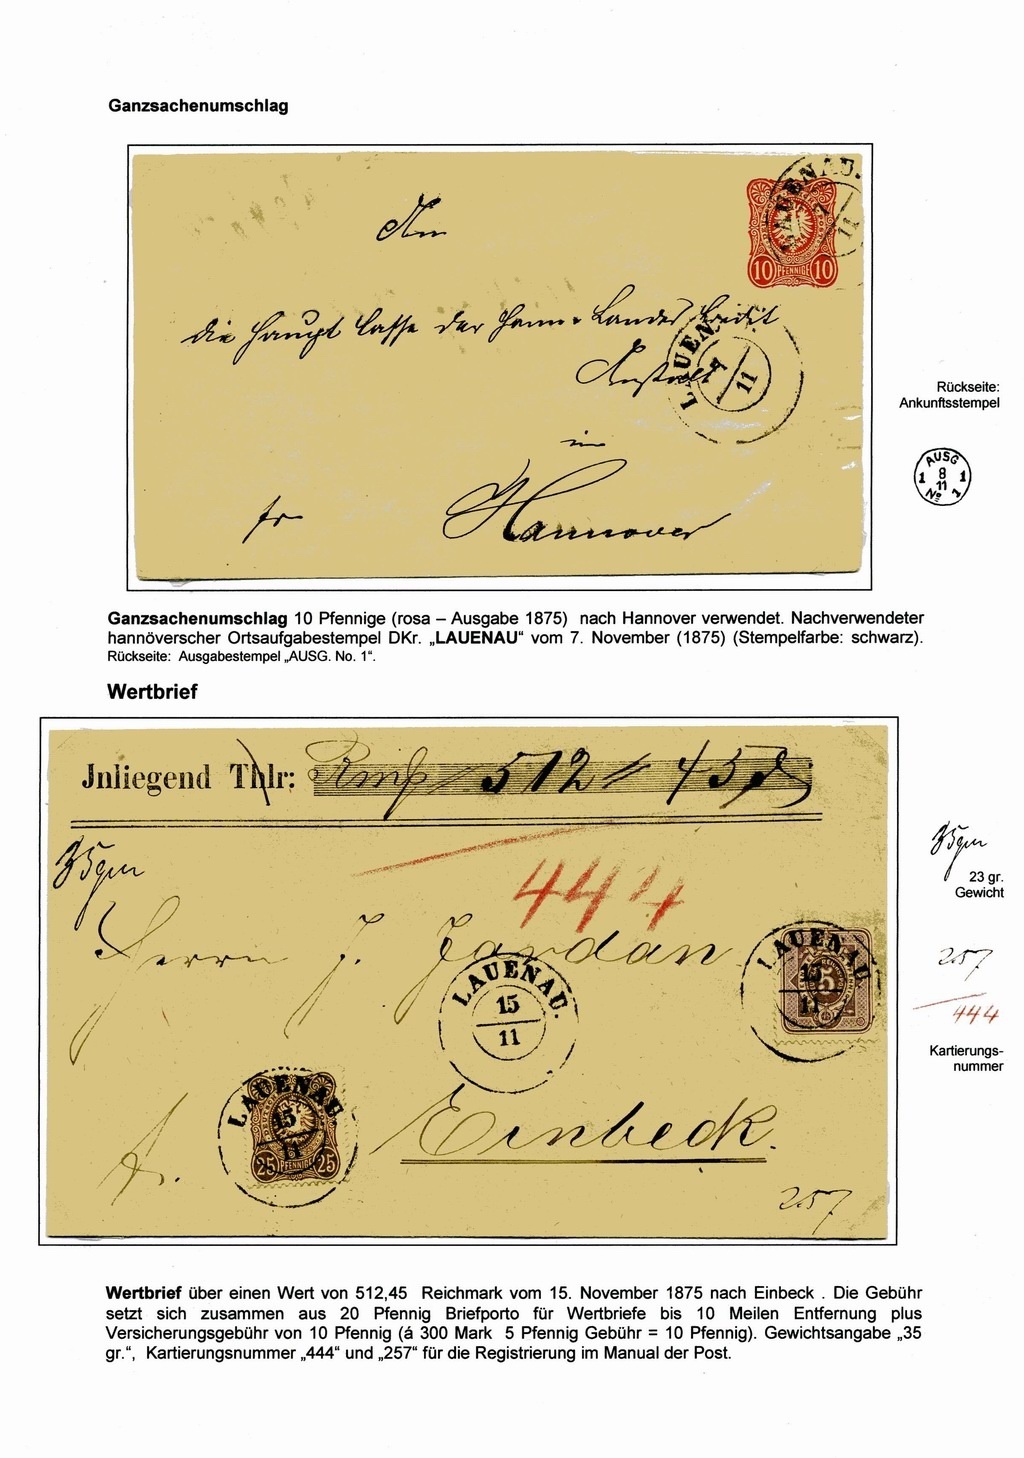 Ganzsachenumschlag
LAUENAU.
7
11
10 PFENNIGE 10
An
die Haupt Casse der Hann. Landes Kredit
Anstalt
LAUENAU.
7
11
in
fr
Hannover
Rückseite:
Ankunftsstempel
AUSG
1 8 1
11
No 1
Ganzsachenumschlag 10 Pfennige (rosa – Ausgabe 1875) nach Hannover verwendet. Nachverwendeter
hannöverscher Ortsaufgabestempel DKr. „LAUENAU“ vom 7. November (1875) (Stempelfarbe: schwarz).
Rückseite: Ausgabestempel „AUSG. No. 1“.
Wertbrief
Jnliegend Thlr: Rmk 512 45
35 gm
444
Herrn J. Jordan
LAUENAU.
15
11
LAUENAU.
15
11
5
LAUENAU.
15
11
25 PFENNIGE 25
fr.
Einbeck.
257
35 gm
23 gr.
Gewicht
257
444
Kartierungs-
nummer
Wertbrief über einen Wert von 512,45 Reichmark vom 15. November 1875 nach Einbeck . Die Gebühr
setzt sich zusammen aus 20 Pfennig Briefporto für Wertbriefe bis 10 Meilen Entfernung plus
Versicherungsgebühr von 10 Pfennig (á 300 Mark 5 Pfennig Gebühr = 10 Pfennig). Gewichtsangabe „35
gr.“, Kartierungsnummer „444“ und „257“ für die Registrierung im Manual der Post.